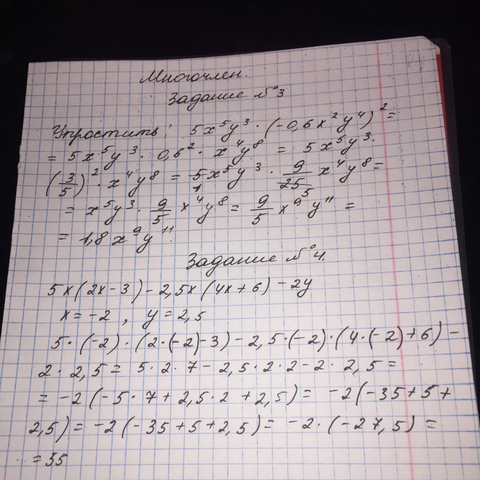 Многочлен.
Задание №3
Упростить: 5x⁵y³ · (-0,6x²y⁴)² =
= 5x⁵y³ · 0,6² · x⁴y⁸ = 5x⁵y³ ·
(3/5)² · x⁴y⁸ = 5x⁵y³ · 9/25 x⁴y⁸ =
= x⁵y³ · 9/5 x⁴y⁸ = 9/5 x⁹y¹¹ =
= 1,8x⁹y¹¹.
Задание №4.
5x(2x-3)-2,5x(4x+6)-2y
x=-2, y=2,5
5·(-2)·(2·(-2)-3)-2,5·(-2)·(4·(-2)+6)-
2·2,5 = 5·2·7-2,5·2·2-2·2,5=
= -2(-5·7+2,5·2+2,5) = -2(-35+5+
2,5) = -2(-35+5+2,5) = -2·(-27,5) =
=55